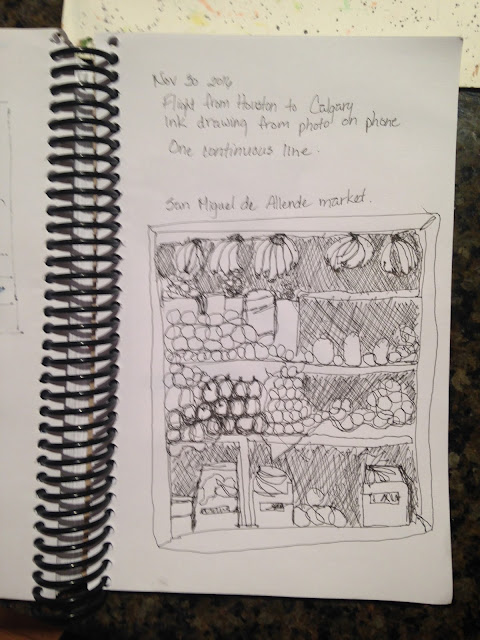 Nov 30 2016
Flight from Houston to Calgary
Ink drawing from photo on phone
One continuous line.
San Miguel de Allende market.